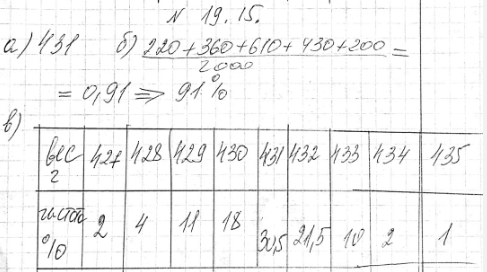 N 19.15.
а) 431 б) (220+360+610+430+200)/2000 =
= 0,91 ⇒ 91%
в)
вес г 427 428 429 430 431 432 433 434 435
частота % 2 4 11 18 30,5 21,5 10 2 1